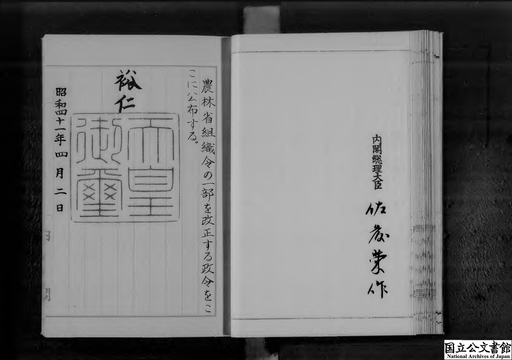 農林省組織令の一部を改正する政令をこ
こに公布する。
裕仁
天皇御璽
昭和四十一年四月二日
内閣総理大臣
佐藤榮作
国立公文書館
National Archives of Japan